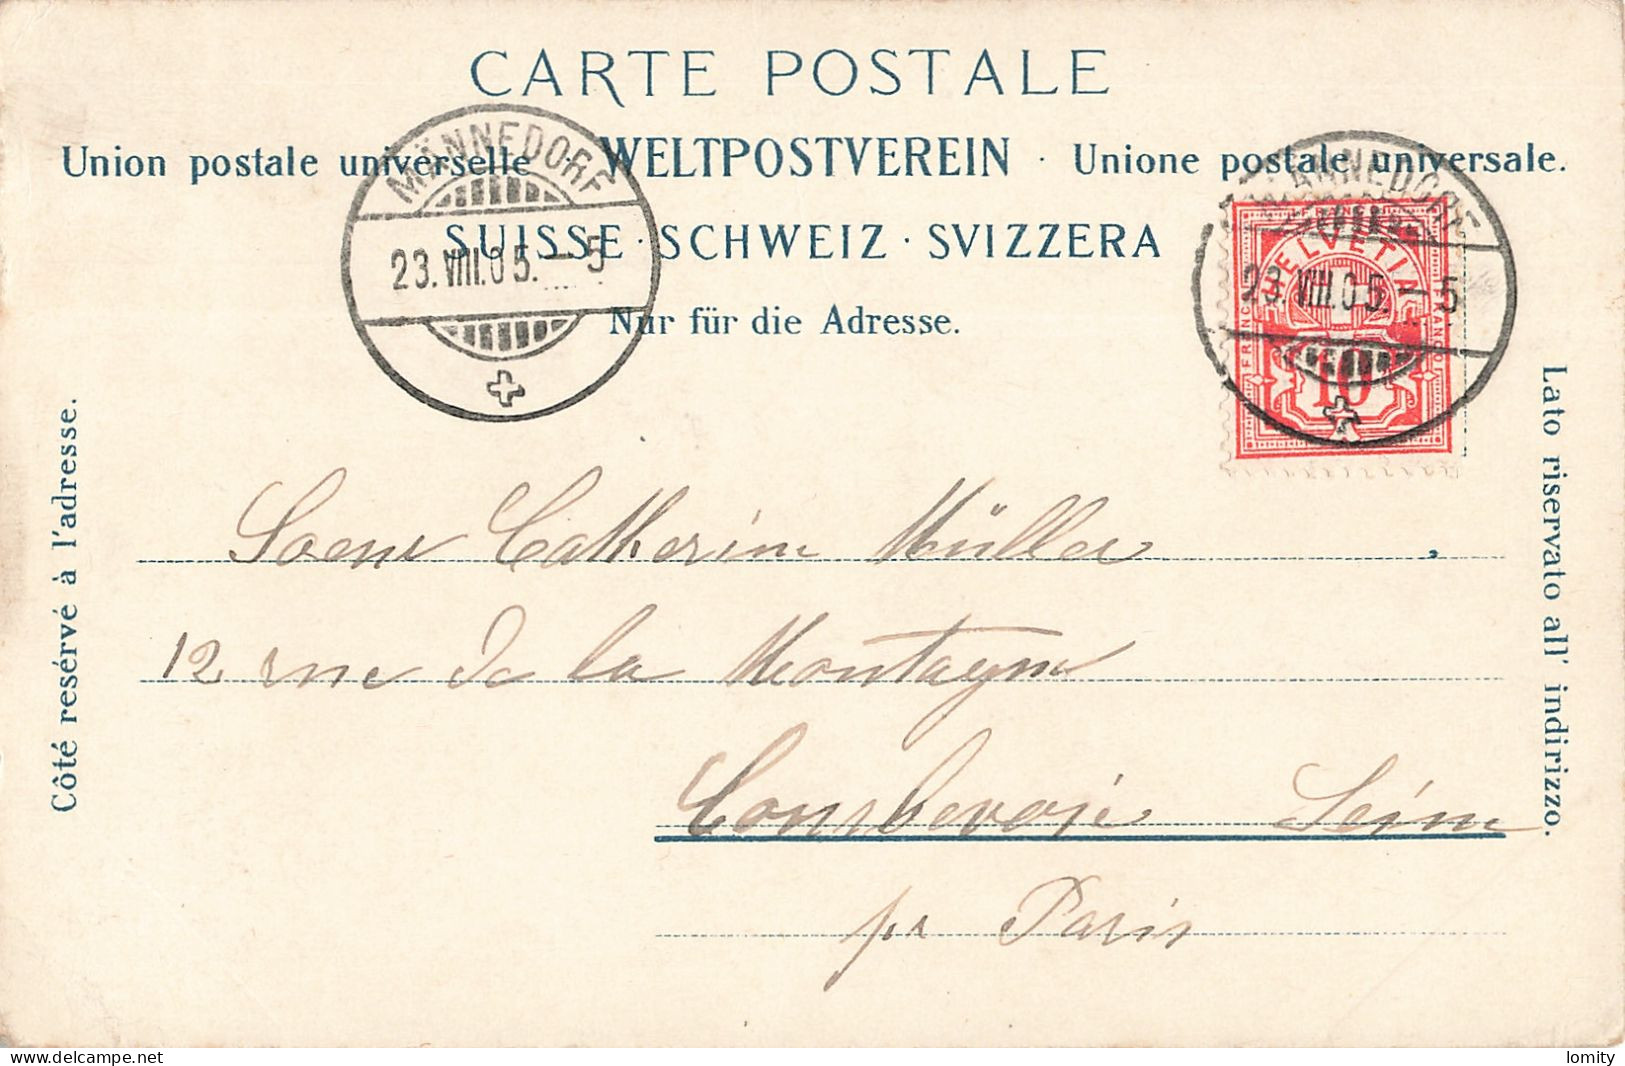 CARTE POSTALE
Union postale universelle · WELTPOSTVEREIN · Unione postale universale.
SUISSE · SCHWEIZ · SVIZZERA
Nur für die Adresse.
MÄNNEDORF
23.VIII.05.–5
MÄNNEDORF
23.VIII.05.–5
HELVETIA
FRANCO
FRANCO
10
Côté resérvé à l'adresse.
Lato riservato all' indirizzo.
Soeur Catherine Müller
12 rue de la Montagne
Courbevoie Seine
pr Paris
delcampe.net
lomity